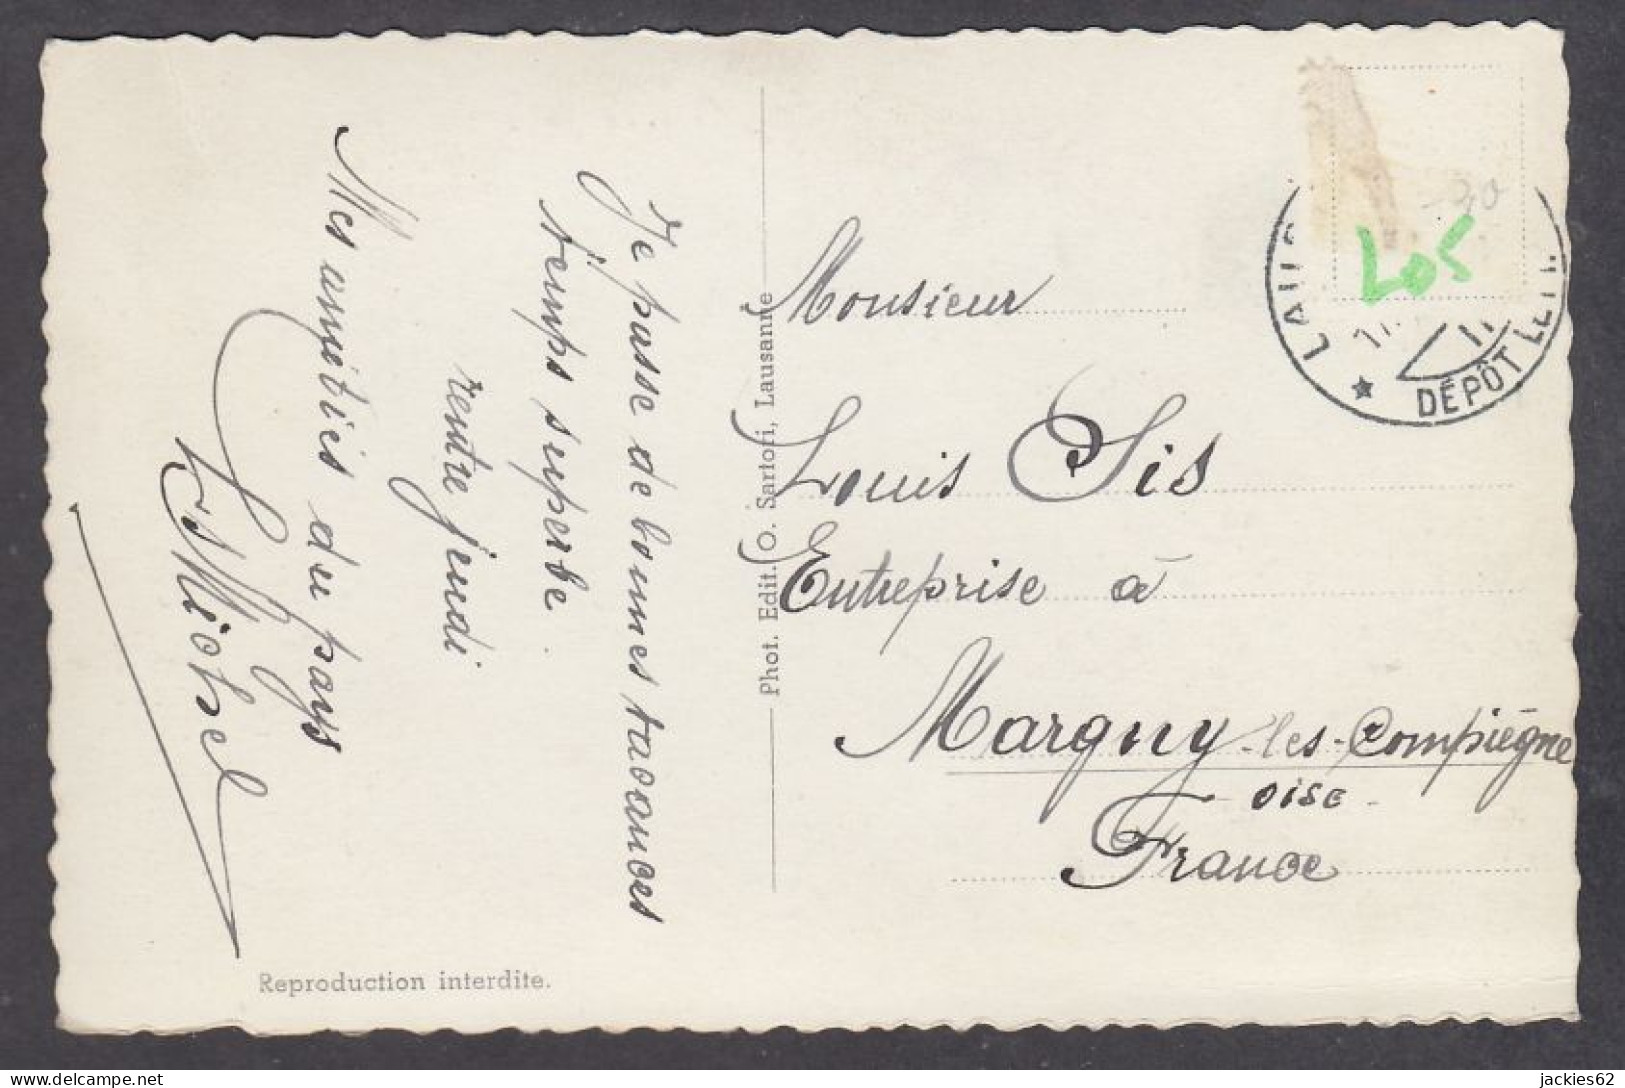 Je passe de bonnes vacances
temps superbe.
rentre jeudi
Mes amitiés du pays
Michel
Reproduction interdite.
Phot. Edit. O. Sartori, Lausanne
Monsieur
Louis Sis
Entreprise à
Margny-les-Compiègne
OISE -
France
LAUS
DÉPÔT LETT.
20
Los
delcampe.net
jackies62